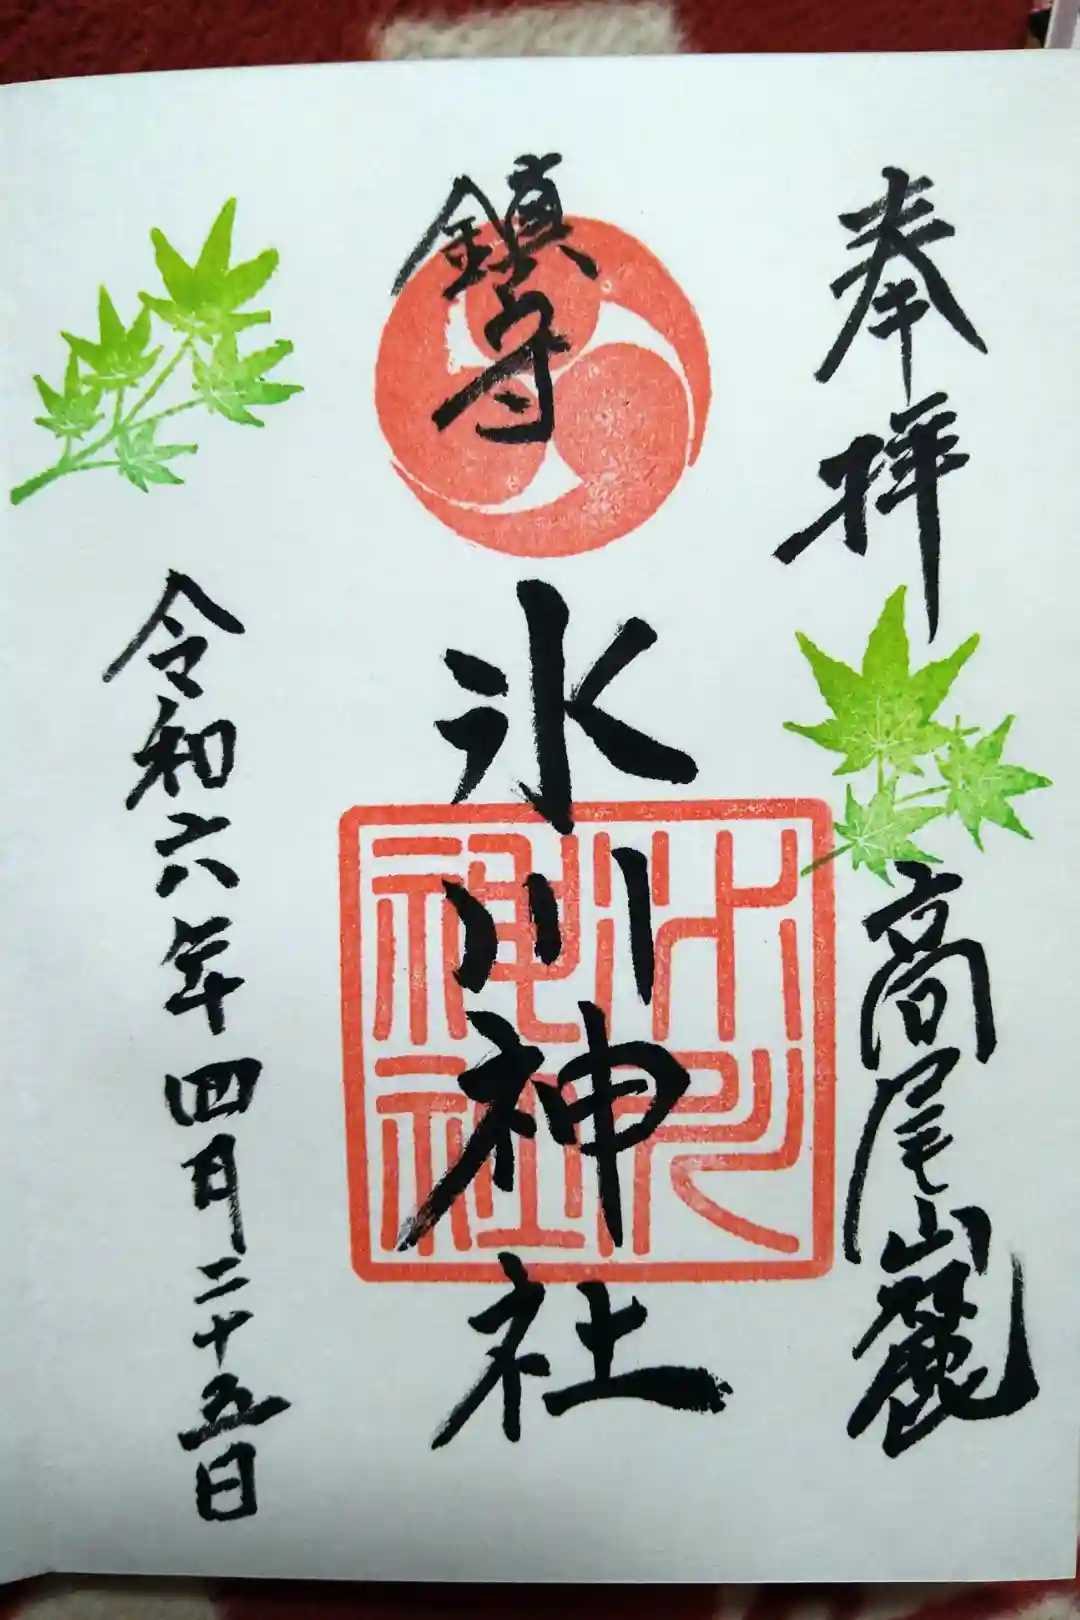 奉拝
高尾山麓
鎮守
氷川神社
氷川
神社
令和六年四月二十五日